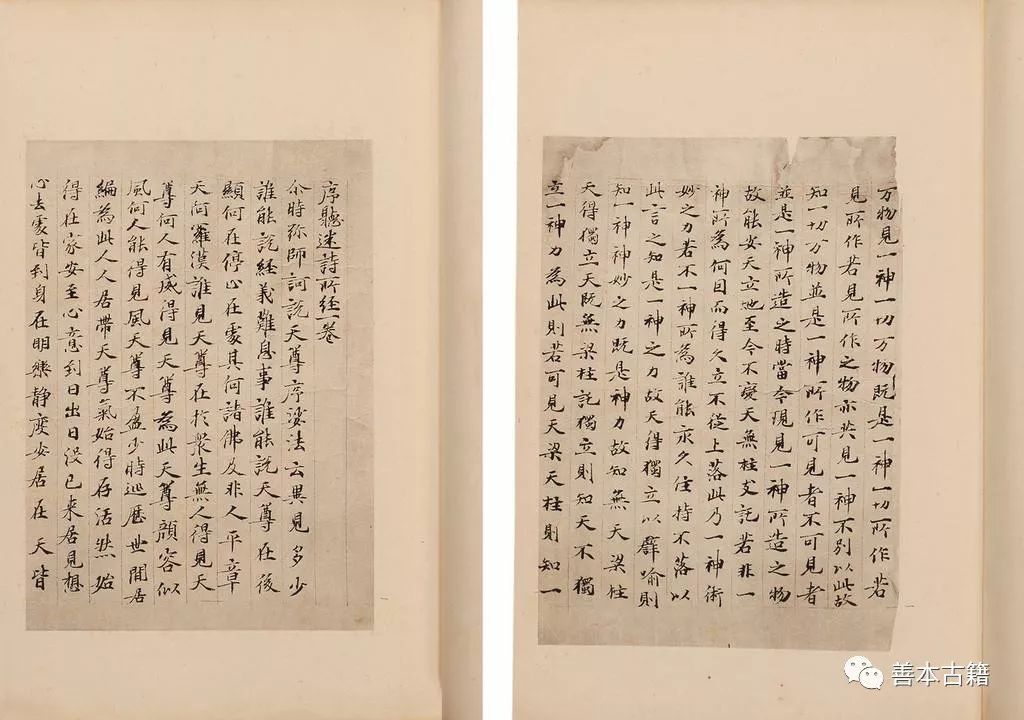 序聽迷詩所経一卷
尒時弥師訶說天尊序娑法云異見多少
誰能說経義難息事誰能說天尊在後
顯何在停心在處其何諸佛及非人平章
天向羅漢誰見天尊在於衆生無人得見天
尊何人有威得見天尊為此天尊顔容似
風何人能得見風天尊不盈少時巡歷世間居
編為此人人居帶天尊氣始得存活然始
得在家安至心意到日出日没已来居見想
心去處皆到身在明樂静度安居在天皆
万物見一神一切万物既是一神一切所作若
見所作若見所作之物亦共見一神不別以此故
知一切万物並是一神所作可見者不可見者
並是一神所造之時當今現見一神所造之物
故能安天立地至今不變天無柱支託若非一
神所為何因而得久立不從上落此乃一神術
妙之力若不一神所為誰能永久住持不落以
此言之知是一神之力故天得獨立以譬喻則
知一神神妙之力既是神力故知無天梁柱
天得獨立天既無梁柱託獨立則知天不獨
立一神力為此則若可見天梁天柱則知一
善本古籍